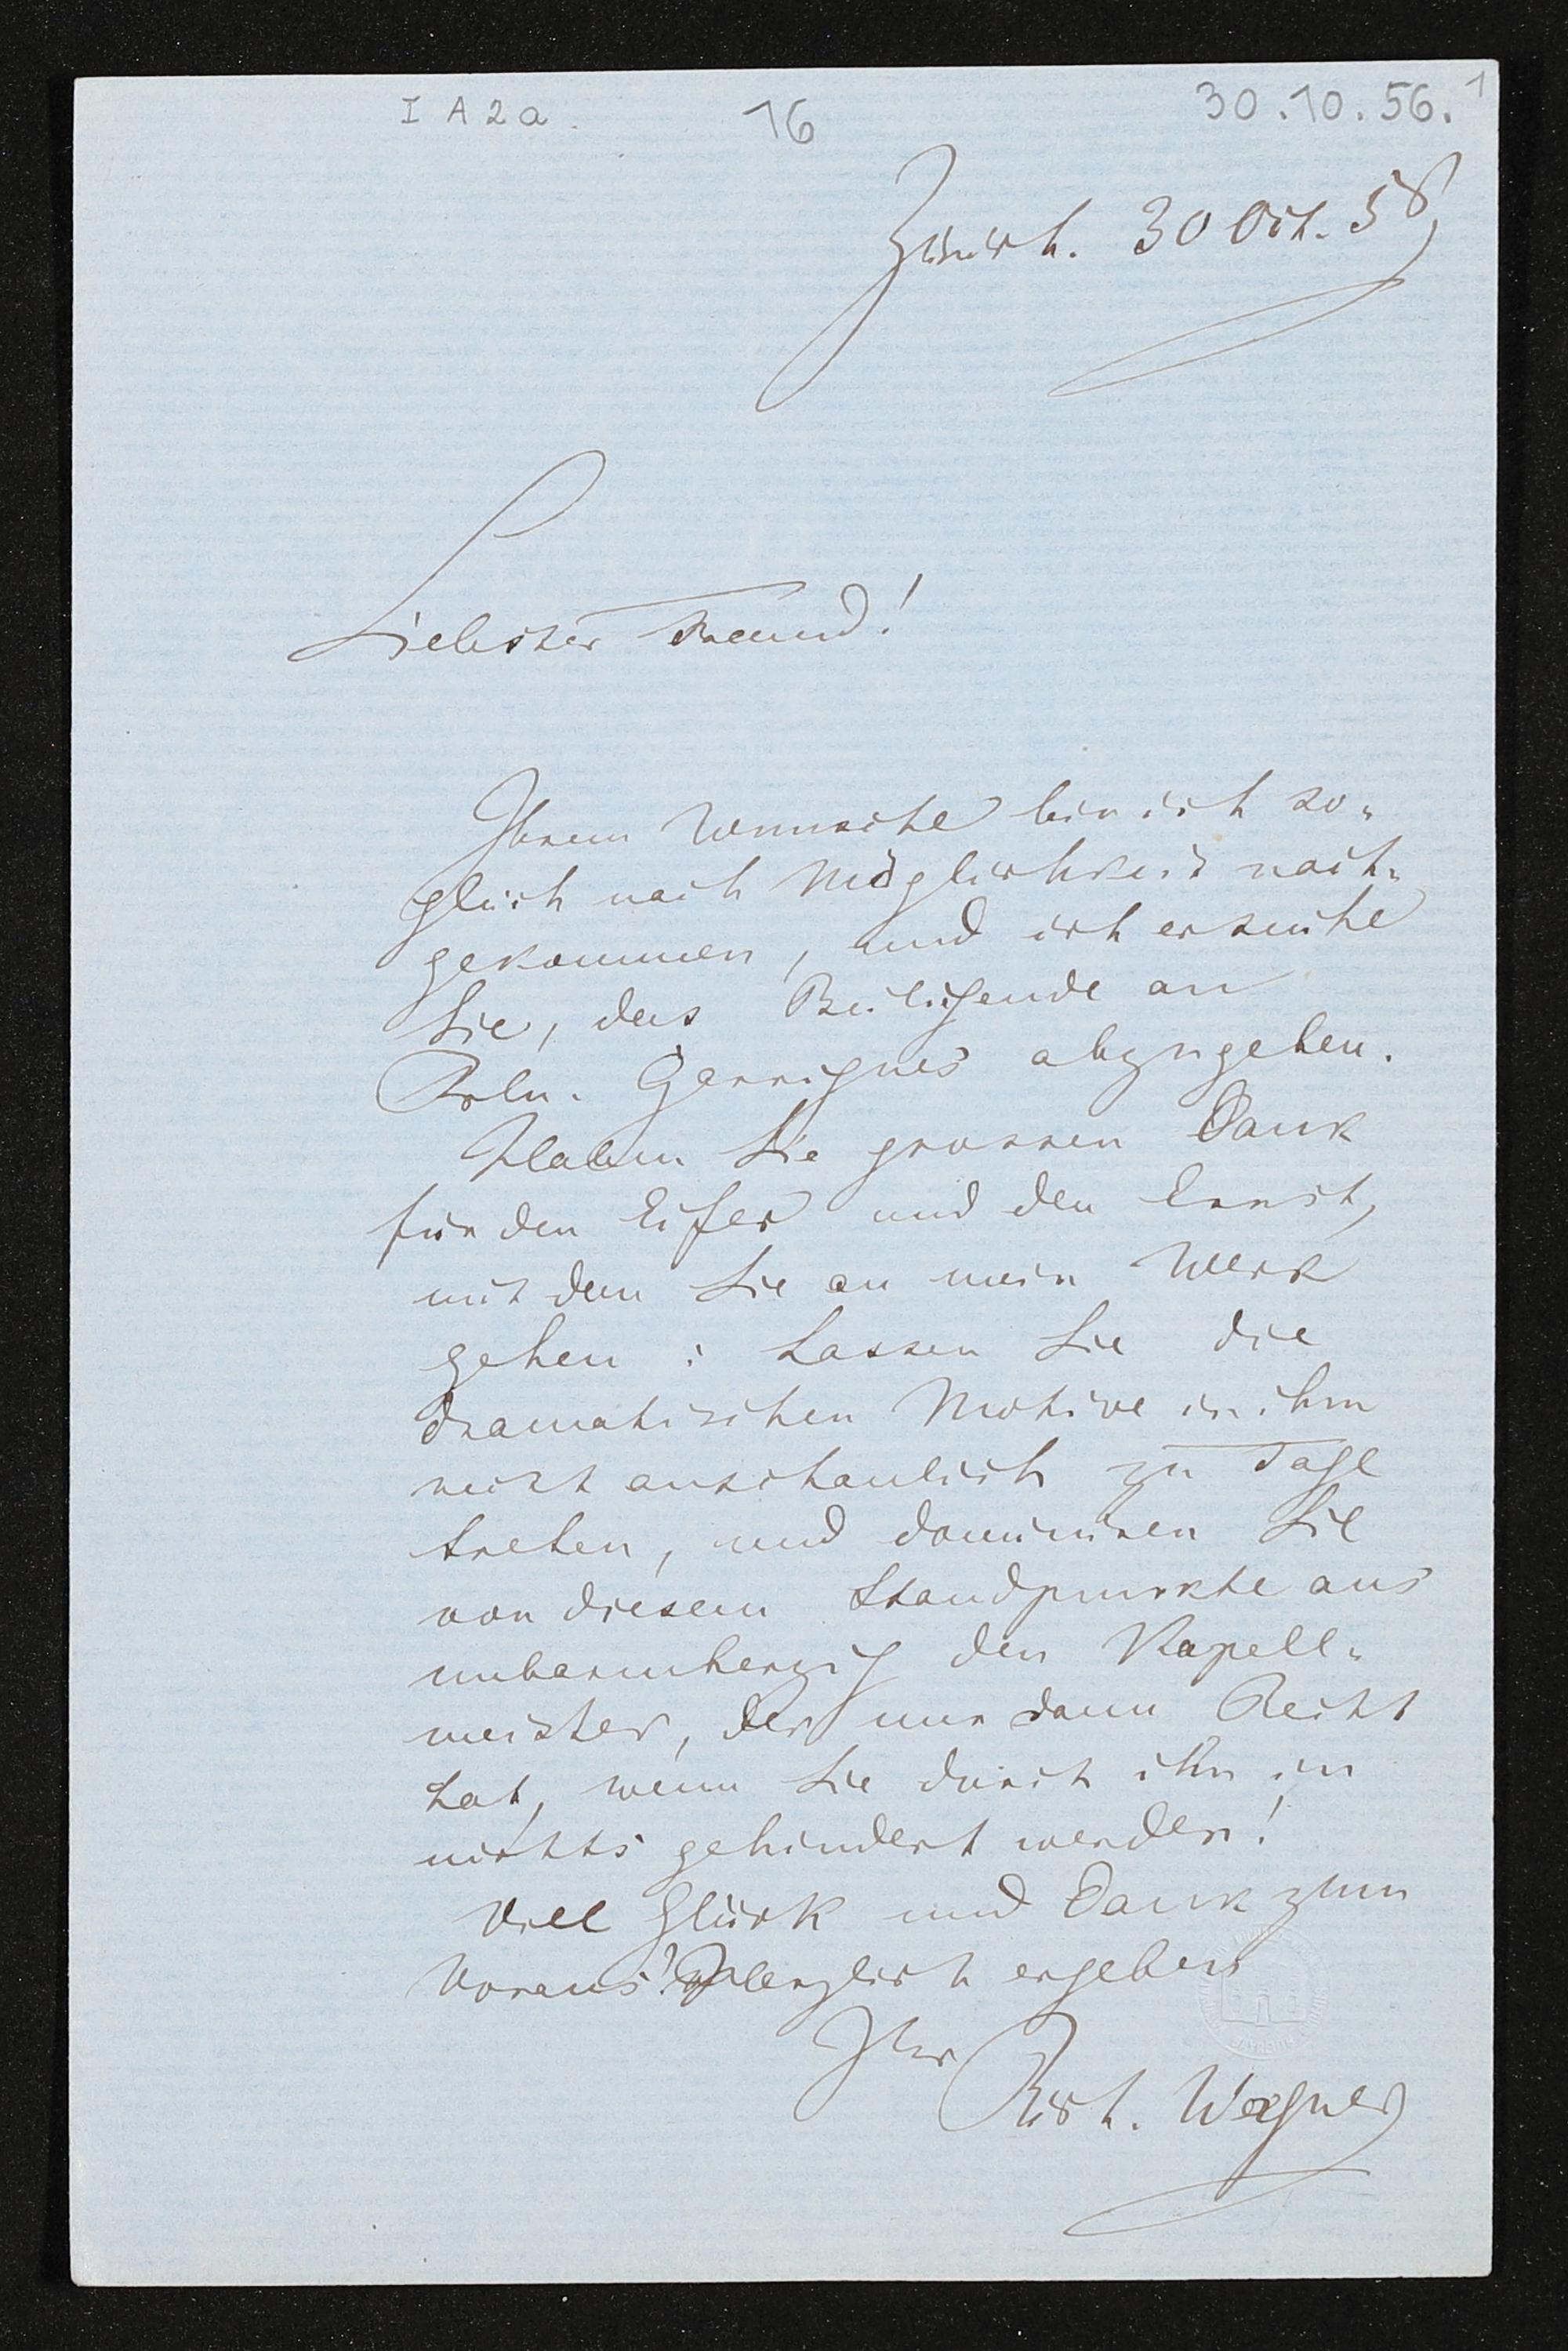 I A 2 a. 16 30.10.56. 1
Zürich. 30 Oct. 56
Liebster Freund!
Ihrem Wunsche bin ich so-
gleich nach Möglichkeit nach-
gekommen, und ich ersuche
Sie, das Beiliegende an
Frln. Garrigues abzugeben.
Haben Sie grossen Dank
für den Eifer und den Ernst,
mit dem Sie an mein Werk
gehen: Lassen Sie die
dramatischen Motive in ihm
recht anschaulich zu Tage
treten, und dominiren Sie
von diesem Standpunkte aus
unbarmherzig den Kapell-
meister, der nur dann Recht
hat, wenn Sie durch ihn in
nichts gehindert werden!
Viel Glück und Dank zum
Voraus! Herzlich ergeben
Ihr
Rich. Wagner